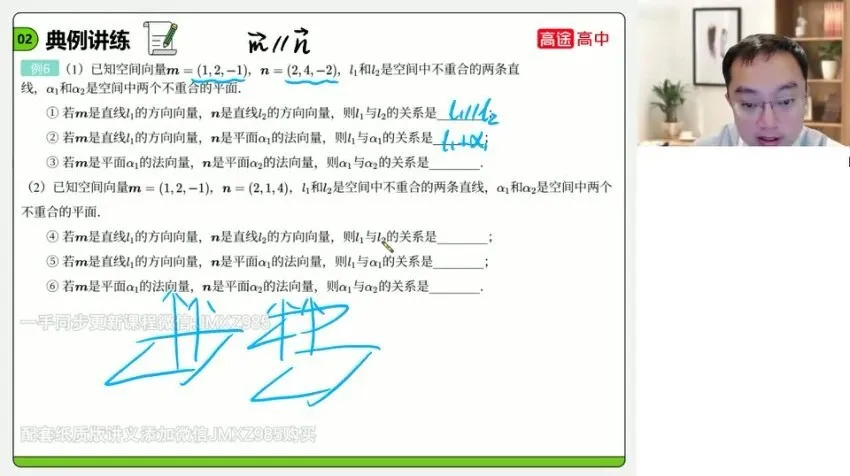 02 典例讲练 m // n 高途 高中
例6 (1) 已知空间向量m = (1, 2, −1), n = (2, 4, −2), l₁和l₂是空间中不重合的两条直
线, α₁和α₂是空间中两个不重合的平面.
① 若m是直线l₁的方向向量, n是直线l₂的方向向量, 则l₁与l₂的关系是 l₁//l₂ ;
② 若m是直线l₁的方向向量, n是平面α₁的法向量, 则l₁与α₁的关系是 l₁⊥α₁ ;
③ 若m是平面α₁的法向量, n是平面α₂的法向量, 则α₁与α₂的关系是______.
(2) 已知空间向量m = (1, 2, −1), n = (2, 1, 4), l₁和l₂是空间中不重合的两条直线, α₁和α₂是空间中两个
不重合的平面.
④ 若m是直线l₁的方向向量, n是直线l₂的方向向量, 则l₁与l₂的关系是______;
⑤ 若m是直线l₁的方向向量, n是平面α₁的法向量, 则l₁与α₁的关系是______;
⑥ 若m是平面α₁的法向量, n是平面α₂的法向量, 则α₁与α₂的关系是______.
一手同步更新课程微信:JMXZ985
配套纸质版讲义添加微信JMXZ985购买